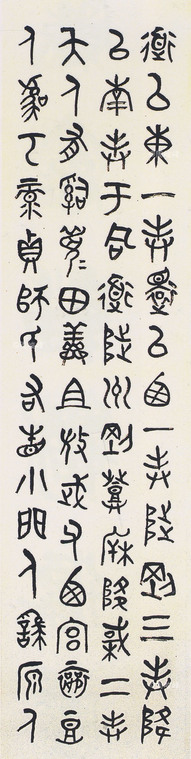 道以東一封還以西一封陟剛三封降
以南封于同道陟州剛登柝降棫二封
夨人有司眉田鮮且微武父西宮襄豆
人虞丂彔貞師氏右眚小門人繇原人